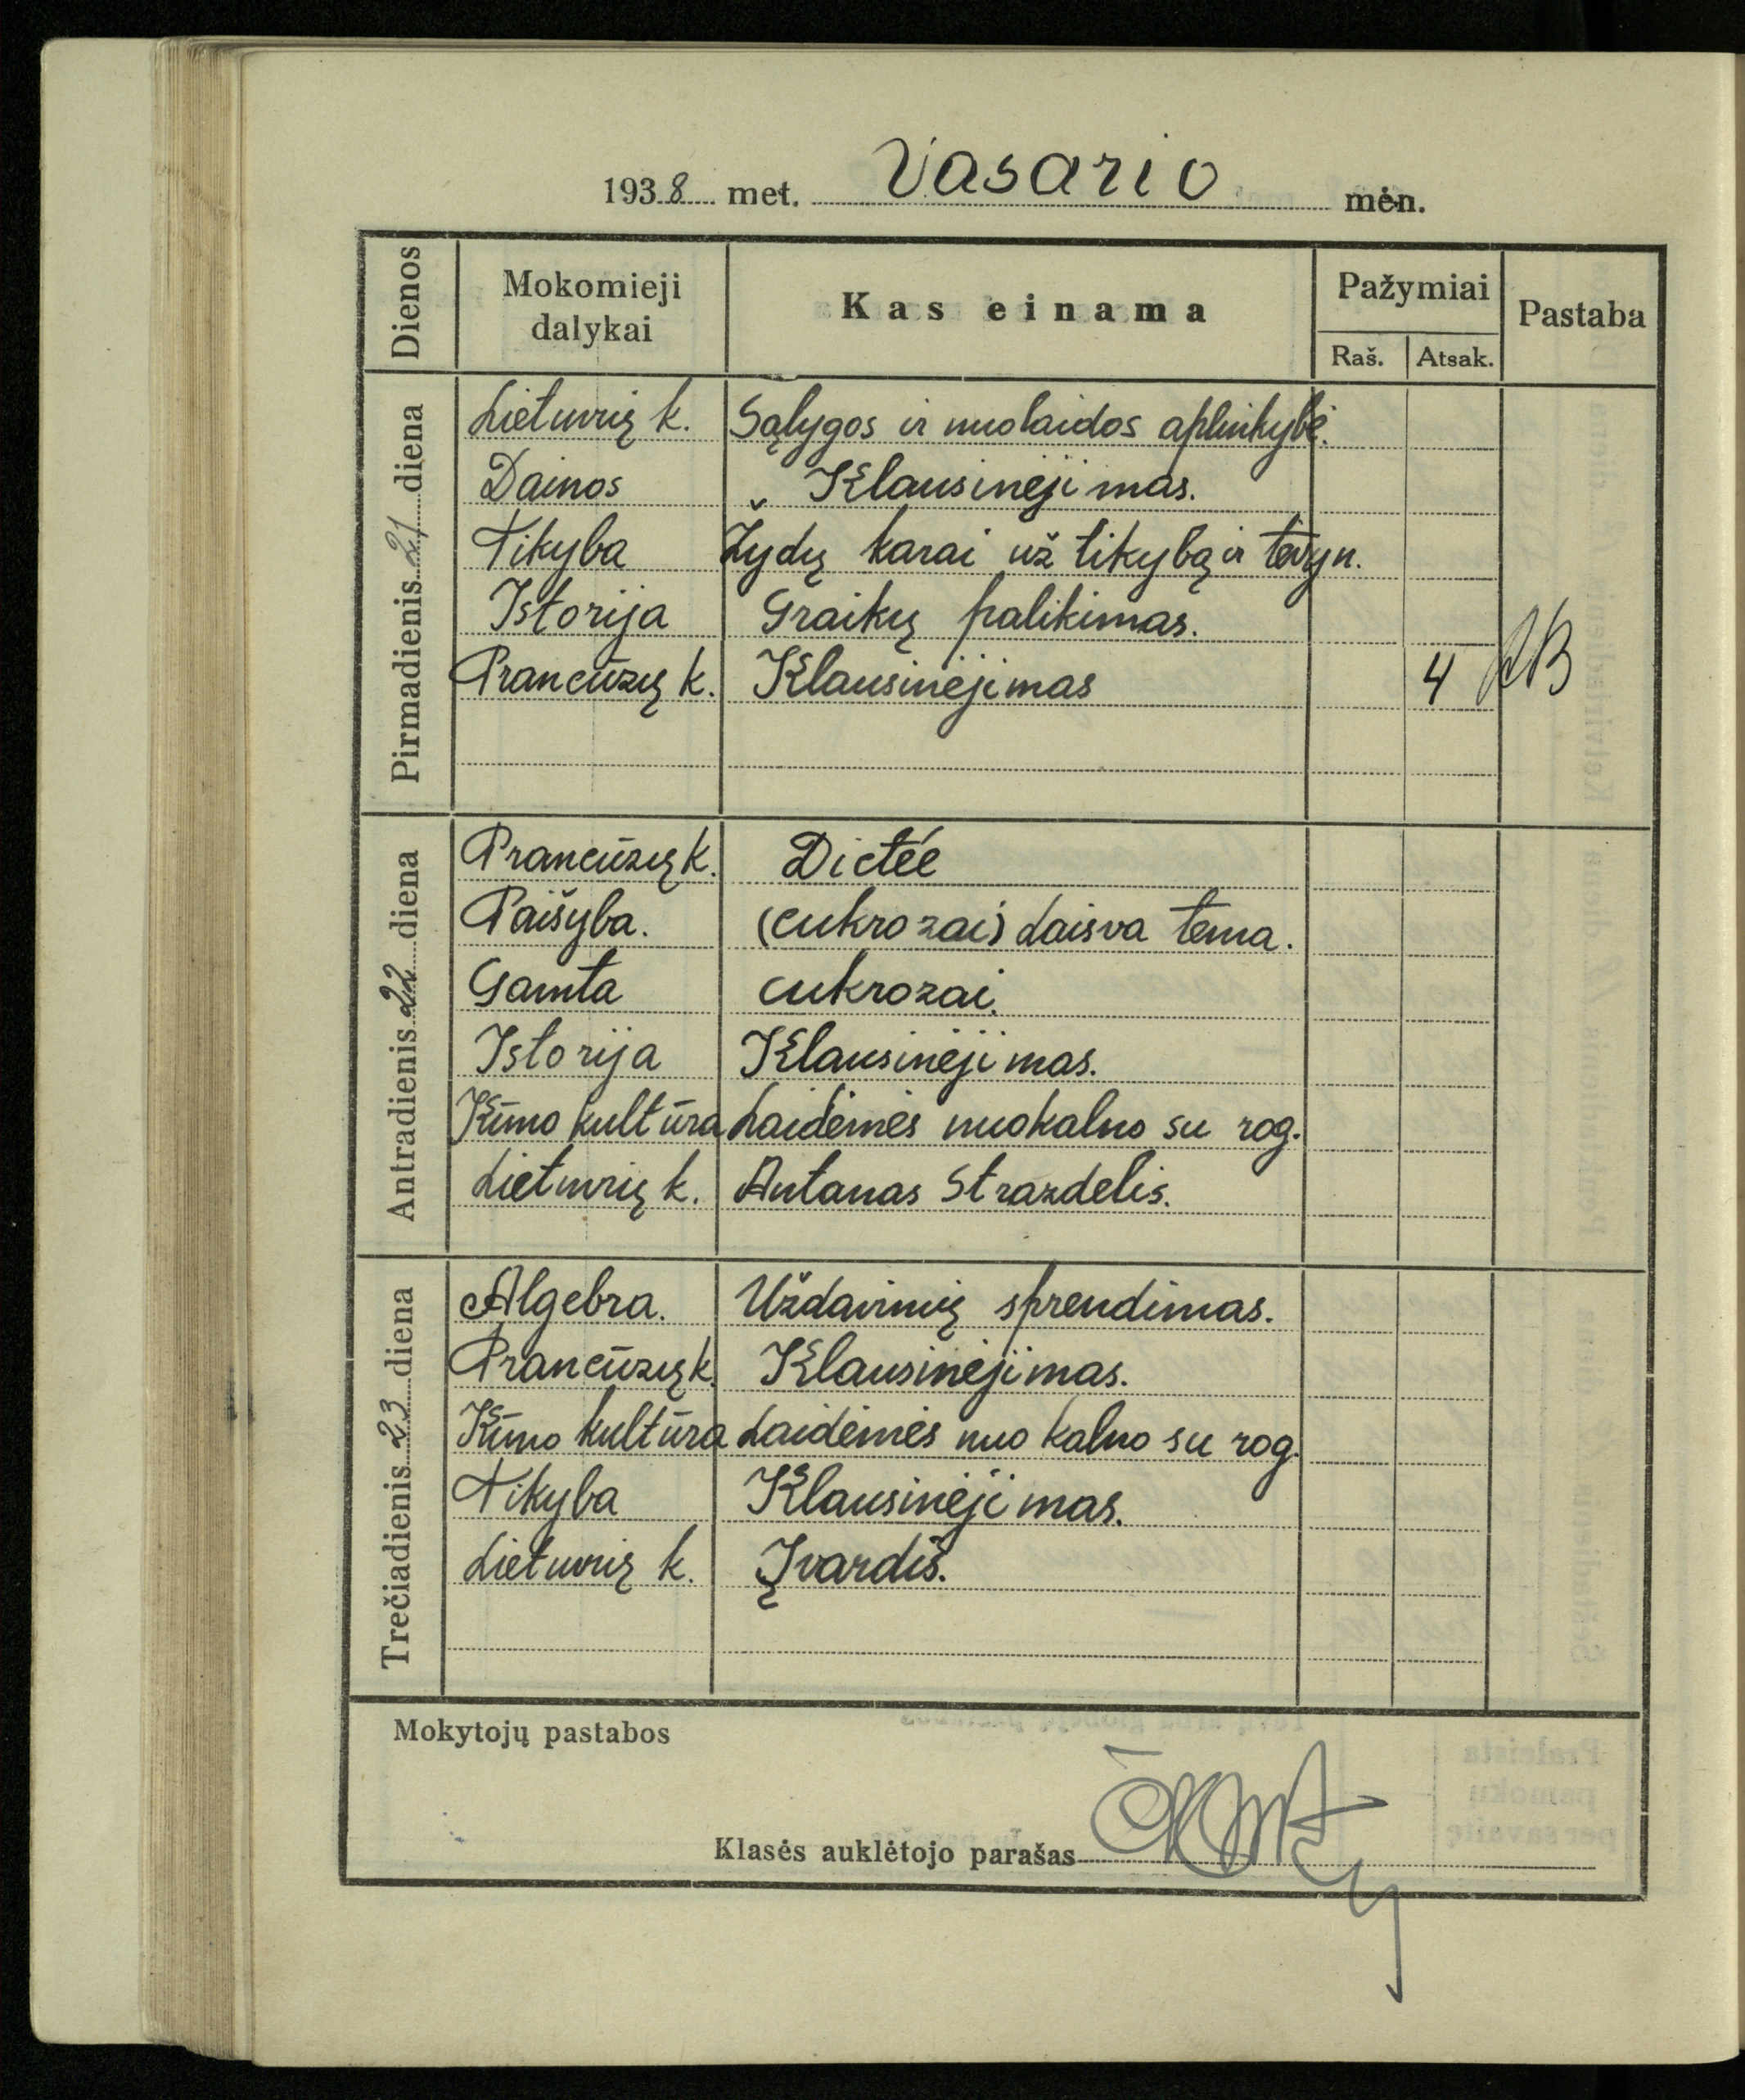 1938 met. Vasario mėn.
Dienos Mokomieji dalykai Kas einama Pažymiai Pastaba
Raš. Atsak.
Pirmadienis 21 diena
Lietuvių k. Sąlygos ir nuolaidos aplinkybė.
Dainos „ Klausinėjimas.
Tikyba Žydų karai už tikybą ir tėvyn.
Istorija Graikų palikimas.
Prancūzų k. Klausinėjimas 4
Antradienis 22 diena
Prancūzų k. Dictée
Paišyba. (cukrozai) Laisva tema.
Gamta cukrozai.
Istorija Klausinėjimas.
Kūno kultūra Laidėmės nuokalno su rog.
Lietuvių k. Antanas Strazdelis.
Trečiadienis 23 diena
Algebra. Uždavinių sprendimas.
Prancūzų k. Klausinėjimas.
Kūno kultūra Laidėmės nuo kalno su rog.
Tikyba Klausinėjimas.
Lietuvių k. Įvardis.
Mokytojų pastabos
Klasės auklėtojo parašas